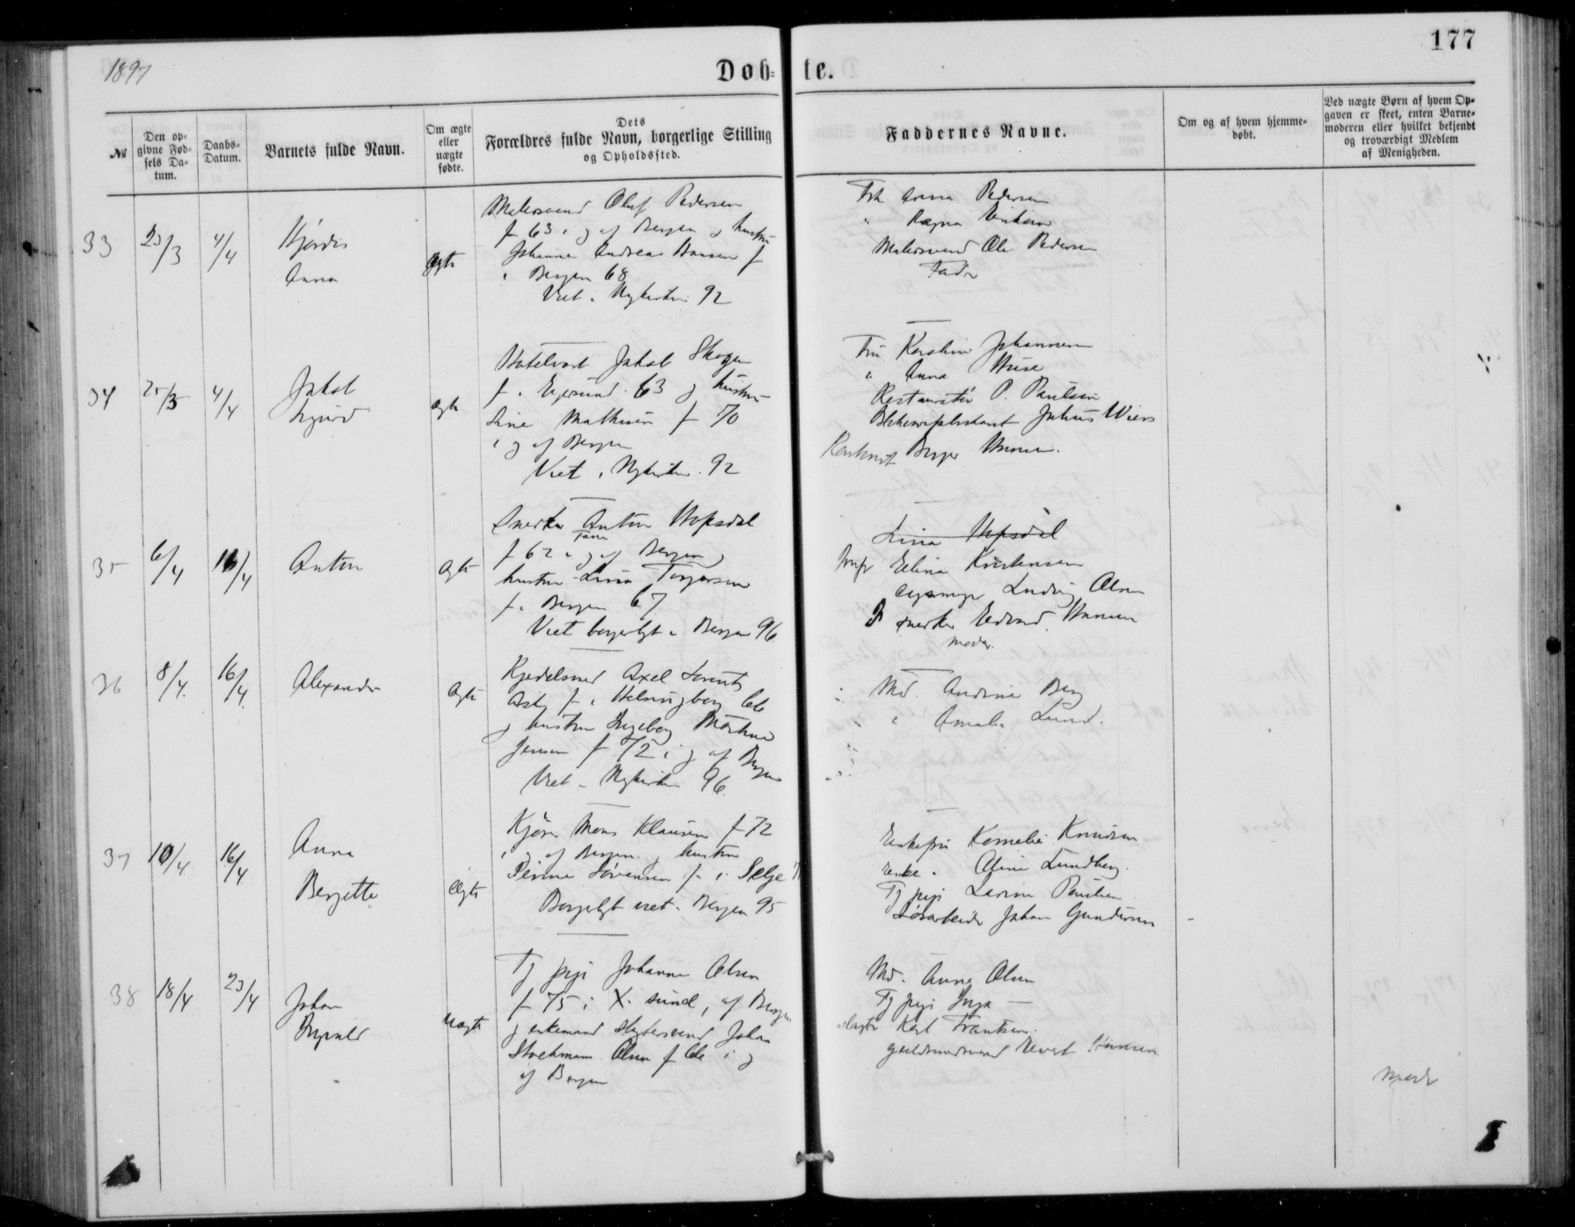 1897
Døb=te.
177
№
Den op=
givne Fød=
sels Da=
tum.
Daabs=
Datum.
Barnets fulde Navn.
Om ægte
eller
uægte
fødte.
Dets
Forældres fulde Navn, borgerlige Stilling
og Opholdssted.
Faddernes Navne.
Om og af hvem hjemme=
døbt.
Ved uægte Børn af hvem Op=
gaven er skeet, enten Barne=
moderen eller hvilket bekjendt
og troværdigt Medlem
af Menigheden.
33
23/3
4/4
Hjørdis
Anna
Ægte
Malersvend Oluf Pedersen
f 63 i og af Bergen og hustru
Johanne Andrea Hansen f
i Bergen 68
Viet i Nykirken 92
Frk Anna Pedersen
" Ragna
Malersvend Ole Pedersen
Fader
34
25/3
4/4
Jakob
Sigurd
Ægte
Jakob Skogen
f. i Egersund 63 og hustru
Line Mathisen f 70
i og af Bergen
Viet i Nykirken 92
Fru Karoline Johannesen
" Anna Huse
Restauratør P. Paulsen
Julius Wiers
Berger Hansen.
35
6/4
16/4
Anton
Ægte
Snedker Anton Hopsdal
f 62 i og af Bergen og
hustru Lina Torgersen
f. i Bergen 67
Viet borgerligt i Bergen 96
Lina Hopsdal
Jomfr Elina Kristensen
Ludvig Olsen
Snedker Edvard Hansen
moder.
36
8/4.
16/4
Alexander
Ægte
Kjedelsmed Axel Lorentz
f. i Helsingborg 66
og hustru Ingeborg Martine
Jensen f 72 i og af Bergen
Viet i Nykirken 96.
Md. Andrine Berg
" Amalie Lund.
37
10/4
16/4
Anna
Bergette
Ægte
Kjører Mons Klausen f 72
i og af Bergen og hustru
Perine Sørensen f i Selje
Borgerligt viet i Bergen 95
Enkefru Kornelia Knudsen
Enke. Oline Lundberg.
Tj pige Lavine Paulsen
Løsarbeider Johan Gundersen
38
18/4
23/4
Johan
Uægte
Tj pige Johanne Olsen
f 75 i X.sund, af Bergen
og enkemand Slagtersvend Johan
Stockmann Olsen f 66 i og
af Bergen
Md. Anna Olsen
Tj pige Inga —
Slagter Karl Frantsen.
guldsmedsvend Hansen
Moder